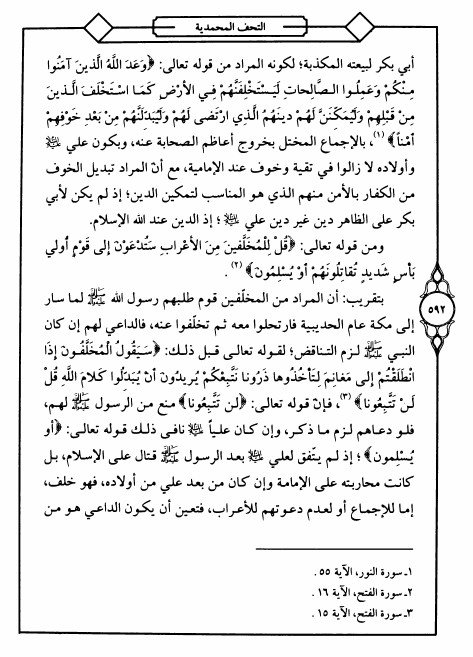 التحف المحمدية
أبي بكر لبيعته المكذبة؛ لكونه المراد من قوله تعالى: ﴿وَعَدَ اللَّهُ الَّذينَ آمَنُوا
مِنكُمْ وَعَمِلُوا الصَّالِحاتِ لَيَسْتَخْلِفَنَّهُمْ فِي الأَرْضِ كَمَا اسْتَخْلَفَ الَّذينَ
مِنْ قَبْلِهِمْ وَلَيُمَكِّنَنَّ لَهُمْ دينَهُمُ الَّذِي ارْتَضى لَهُمْ وَلَيُبَدِّلَنَّهُمْ مِنْ بَعْدِ خَوْفِهِمْ
أَمْناً﴾ (١)، بالإجماع المختل بخروج أعاظم الصحابة عنه، وبكون علي ﷺ
وأولاده لا زالوا في تقية وخوف عند الإمامية، مع أنّ المراد تبديل الخوف
من الكفار بالأمن منهم الذي هو المناسب لتمكين الدين؛ إذ لم يكن لأبي
بكر على الظاهر دين غير دين علي ﷺ؛ إذ الدين عند الله الإسلام.
ومن قوله تعالى: ﴿قُل لِلْمُخَلَّفينَ مِنَ الأَعْرابِ سَتُدْعَوْنَ إِلى قَوْمٍ أُولي
بَأسٍ شَديدٍ تُقاتِلُونَهُمْ أَوْ يُسْلِمُونَ﴾ (٢).
بتقريب: أن المراد من المخلّفين قوم طلبهم رسول الله ﷺ لما سار
إلى مكة عام الحديبية فارتحلوا معه ثم تخلّفوا عنه، فالداعي لهم إن كان
النبي ﷺ لزم التناقض؛ لقوله تعالى قبل ذلك: ﴿سَيَقُولُ الْمُخَلَّفُونَ إِذَا
انْطَلَقْتُمْ إِلى مَغانِمَ لِتَأخُذُوها ذَرُونا نَتَّبِعْكُمْ يُريدُونَ أَنْ يُبَدِّلُوا كَلامَ اللَّهِ قُلْ
لَنْ تَتَّبِعُونا﴾ (٣)، فإنّ قوله تعالى: ﴿لن تتَّبِعُونا﴾ منع من الرسول ﷺ لهم،
فلو دعاهم لزم ما ذكر، وإن كان علياً ﷺ نافى ذلك قوله تعالى: ﴿أو
يُسلِمون﴾؛ إذ لم يتّفق لعلي ﷺ بعد الرسول ﷺ قتال على الإسلام، بل
كانت محاربته على الإمامة وإن كان من بعد علي من أولاده، فهو خلف،
إما للإجماع أو لعدم دعوتهم للأعراب، فتعين أن يكون الداعي هو من
٥٩٢
١ـ سورة النور، الآية ٥٥.
٢ـ سورة الفتح، الآية ١٦.
٣ـ سورة الفتح، الآية ١٥.